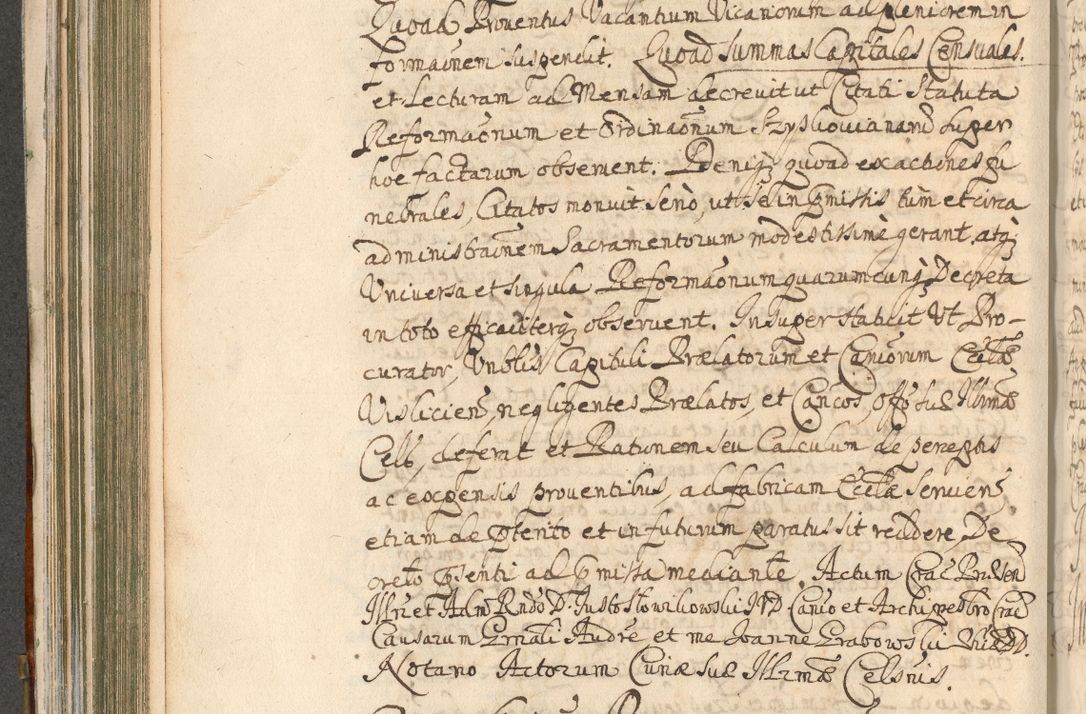 Quoad Proventus Vacantium Vicariorum ad pleniorem in
formaõnem suspendit. Quoad summas Capitales Censuales.
et Lecturam ad Mensam decrevit ut Citati Statuta
Reformaõnum et Ordinaõnum Szyskovianarũ super
hoc factarum observent. Deniq; quoad exactiones fu
nebrales, Citatos monuit serio, ut se in p̃missis tum et circa
administraõnem Sacramentorum modestissimè gerant, atq;
Universa et singula Reformaõnum quarumcunq; Decreta
in toto efficaciterq; observent. Insuper statuit Ut Pro-
curator, Vnblis Capituli Prælatorum et Canicorum Ecclæ
Visliciens, negligentes Prælatos, et Cancos, Offo suæ Illrmæ
Cels, deferat et Rationem seu Calculum de perceptis
ac expensis proventibus, ad fabricam Ecclæ serviens
etiam de p̃terito et in futurum paratus sit reddere, De
creto p̃senti ad p̃missa mediante. Actum Crac Prĩ Vend
Illri et Adm Rndo D. Justo Słowikowski IVD Canco et Archipresbro Crac
Causarum Gr̃nali Audre et me Joanne Grabowski
Notario Actorum Curiæ suæ Illrmæ Celsnis.